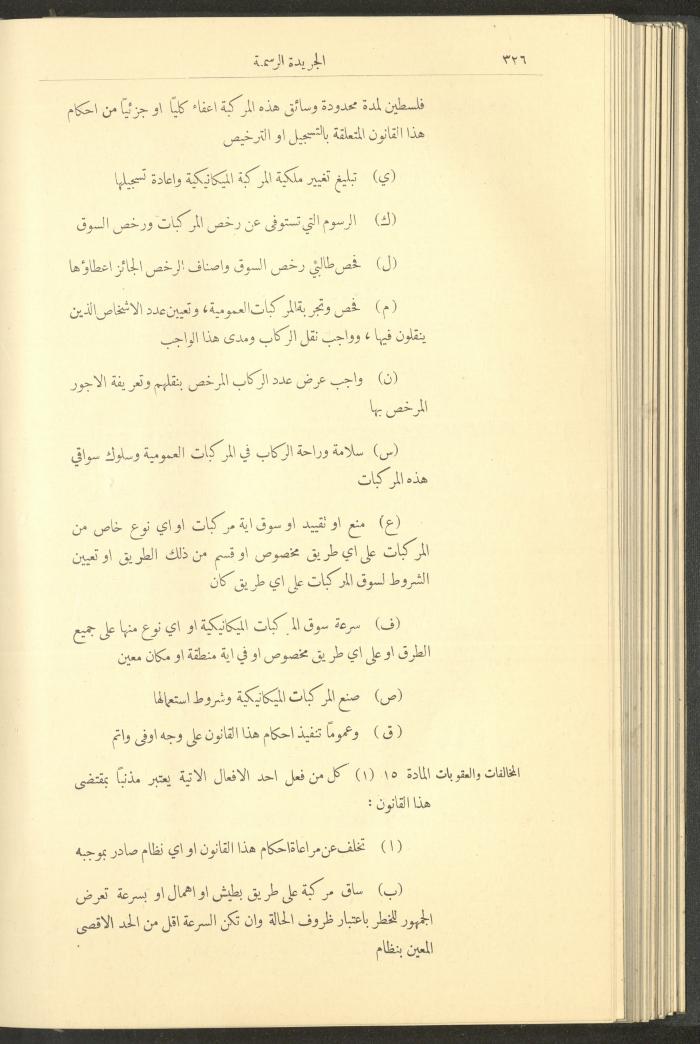 ٣٢٦
الجريدة الرسمية
فلسطين لمدة محدودة وسائق هذه المركبة اعفاء كليًا او جزئيًا من احكام
هذا القانون المتعلقة بالتسجيل او الترخيص
(ي) تبليغ تغيير ملكية المركبة الميكانيكية واعادة تسجيلها
(ك) الرسوم التي تستوفى عن رخص المركبات ورخص السوق
(ل) فحص طالبي رخص السوق واصناف الرخص الجائز اعطاؤها
(م) فحص وتجربة المركبات العمومية، وتعيين عدد الاشخاص الذين
ينقلون فيها، وواجب نقل الركاب ومدى هذا الواجب
(ن) واجب عرض عدد الركاب المرخص بنقلهم وتعريفة الاجور
المرخص بها
(س) سلامة وراحة الركاب في المركبات العمومية وسلوك سواقي
هذه المركبات
(ع) منع او تقييد او سوق اية مركبات او اي نوع خاص من
المركبات على اي طريق مخصوص او قسم من ذلك الطريق او تعيين
الشروط لسوق المركبات على اي طريق كان
(ف) سرعة سوق المركبات الميكانيكية او اي نوع منها على جميع
الطرق او على اي طريق مخصوص او في اية منطقة او مكان معين
(ص) صنع المركبات الميكانيكية وشروط استعمالها
(ق) وعمومًا تنفيذ احكام هذا القانون على وجه اوفى واتم
المخالفات والعقوبات المادة ١٥ (١) كل من فعل احد الافعال الاتية يعتبر مذنبًا بمقتضى
هذا القانون:
(ا) تخلف عن مراعاة احكام هذا القانون او اي نظام صادر بموجبه
(ب) ساق مركبة على طريق بطيش او اهمال او بسرعة تعرض
الجمهور للخطر باعتبار ظروف الحالة وان تكن السرعة اقل من الحد الاقصى
المعين بنظام